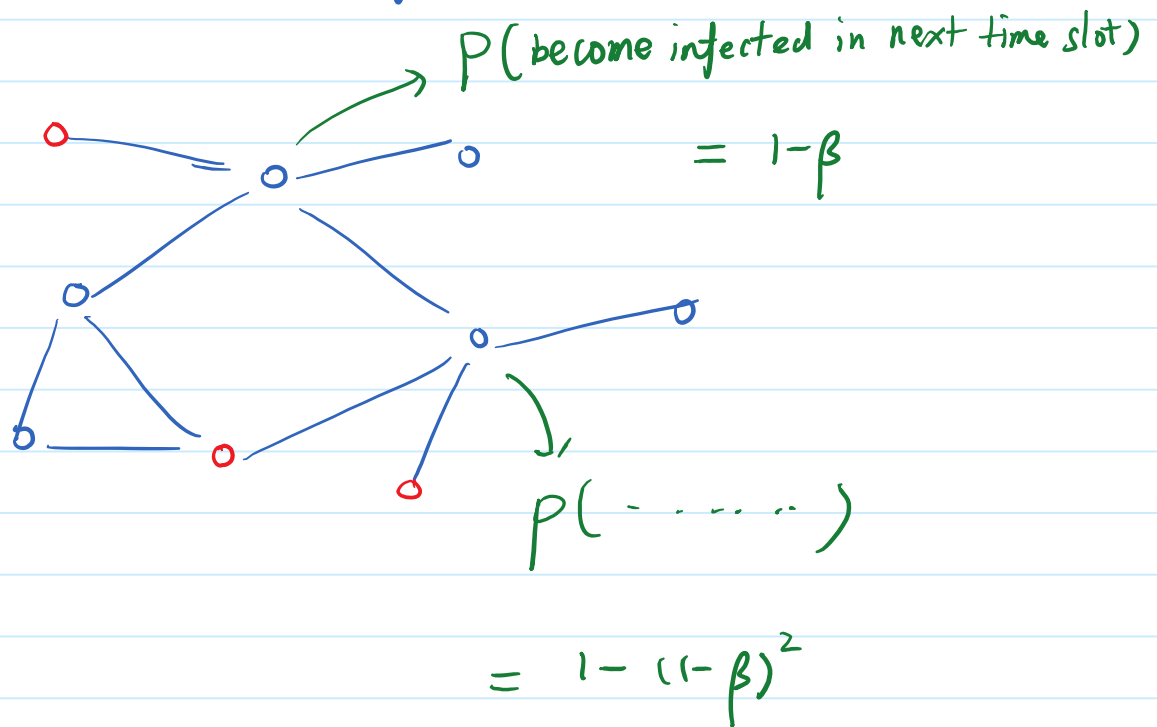 P(become infected in next time slot)
= 1-β
P(- - - - -)
= 1-(1-β)²